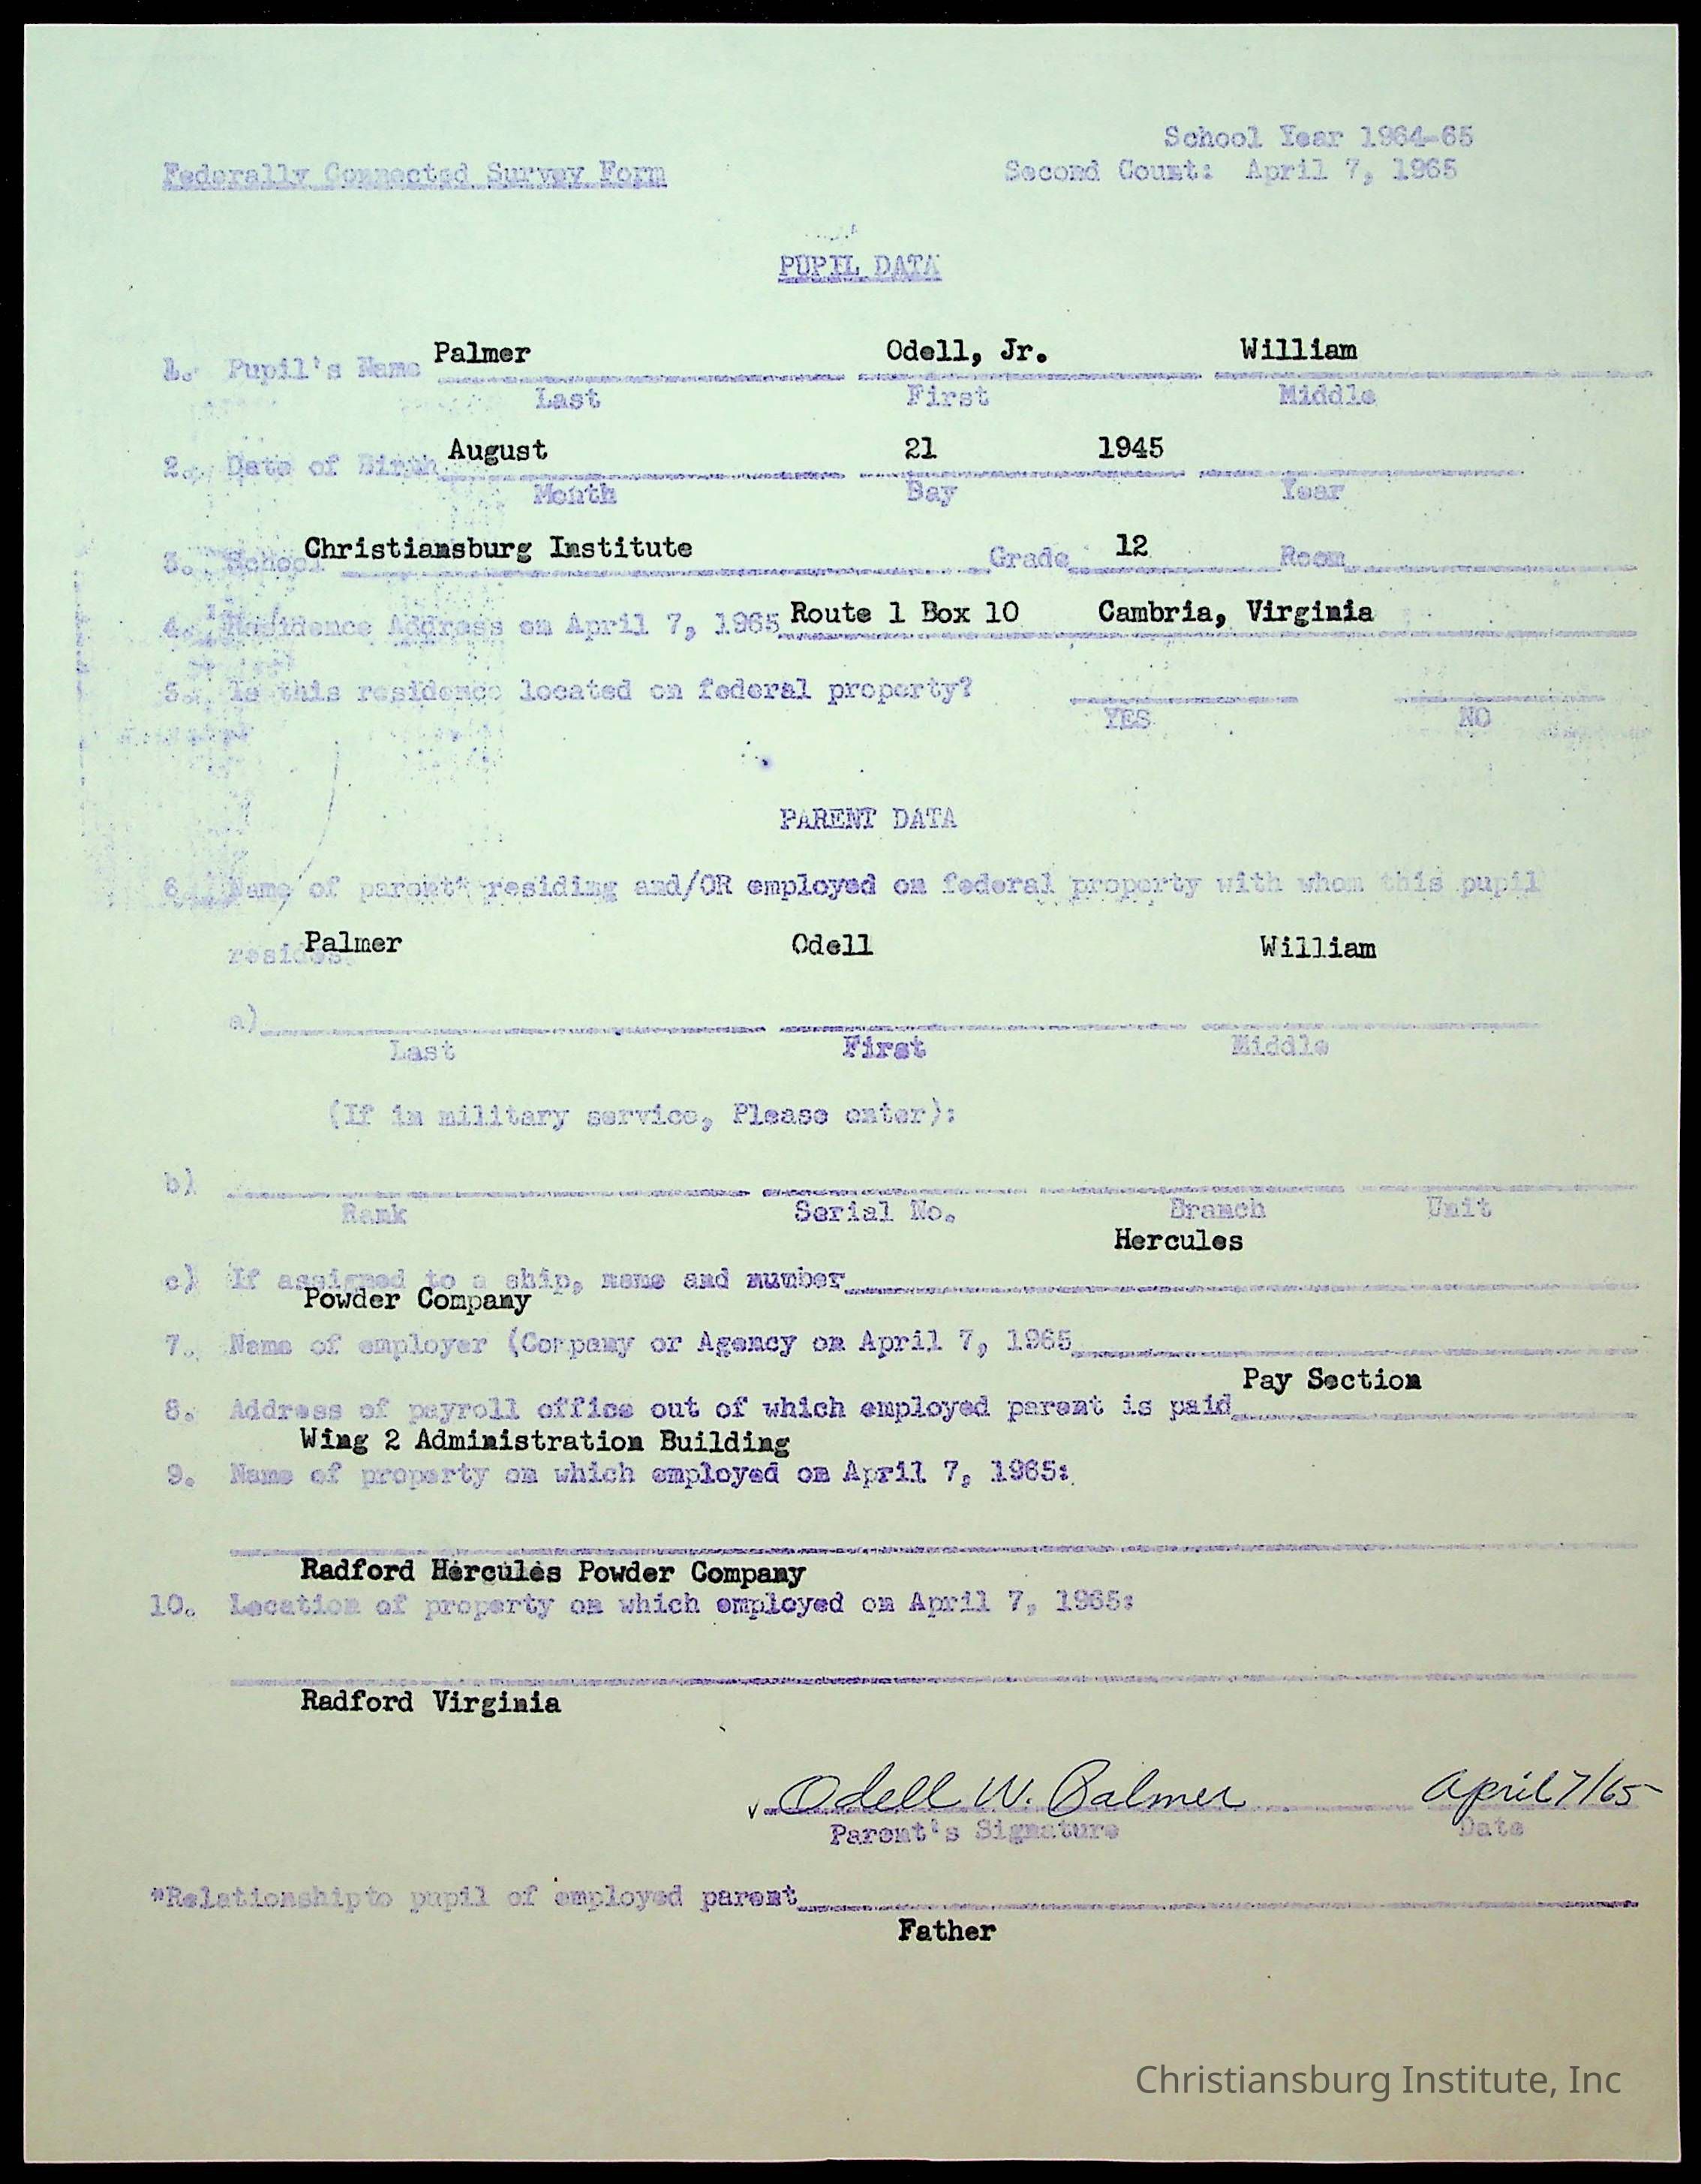 School Year 1964-65
Federally Connected Survey Form Second Count: April 7, 1965
PUPIL DATA
1. Pupil's Name Palmer Odell, Jr. William
Last First Middle
2. Date of Birth August 21 1945
Month Day Year
3. School Christiansburg Institute Grade 12 Room
4. Residence Address on April 7, 1965 Route 1 Box 10 Cambria, Virginia
5. Is this residence located on federal property?
YES NO
PARENT DATA
6. Name of parent* residing and/OR employed on federal property with whom this pupil
resides. Palmer Odell William
a)
Last First Middle
(If in military service, Please enter):
b)
Rank Serial No. Branch Unit
Hercules
c) If assigned to a ship, name and number
Powder Company
7. Name of employer (Company or Agency on April 7, 1965
Pay Section
8. Address of payroll office out of which employed parent is paid
Wing 2 Administration Building
9. Name of property on which employed on April 7, 1965:
Radford Hercules Powder Company
10. Location of property on which employed on April 7, 1965:
Radford Virginia
Odell W. Palmer April 7/65
Parent's Signature Date
*Relationship to pupil of employed parent
Father
Christiansburg Institute, Inc